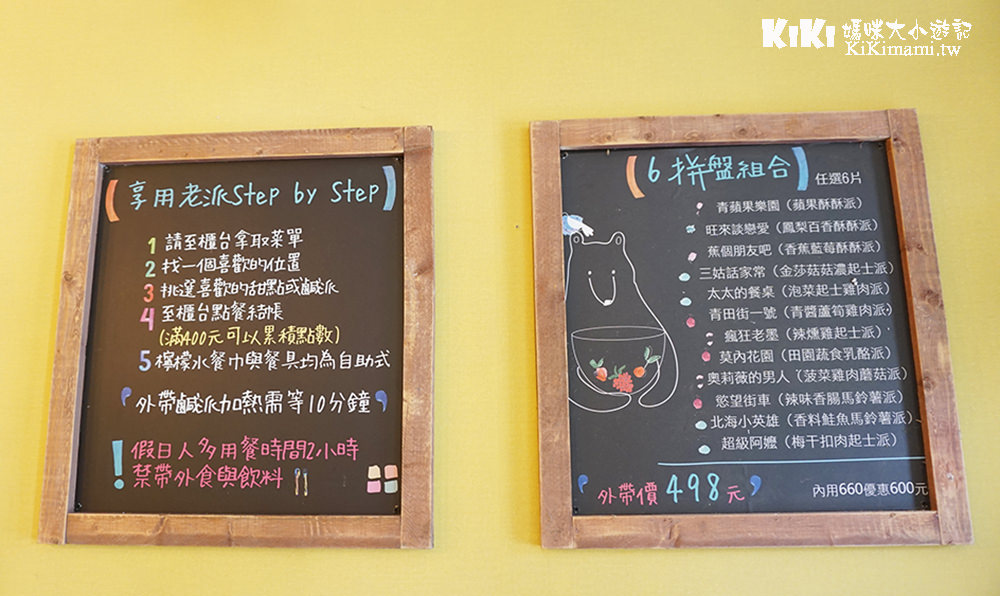 KiKi 媽咪大小遊記
KiKimami.tw
享用老派Step by Step
1 請至櫃台拿取菜單
2 找一個喜歡的位置
3 挑選喜歡的甜點或鹹派
4 至櫃台點餐結帳
(滿400元可以累積點數)
5 檸檬水餐巾與餐具均為自助式
外帶鹹派加熱需等10分鐘
! 假日人多用餐時間2小時
禁帶外食與飲料
6拼盤組合 任選6片
青蘋果樂園（蘋果酥酥派）
旺來談戀愛（鳳梨百香酥酥派）
蕉個朋友吧（香蕉藍莓酥酥派）
三姑話家常（金莎菇菇濃起士派）
太太的餐桌（泡菜起士雞肉派）
青田街一號（青醬蘆筍雞肉派）
瘋狂老墨（辣燻雞起士派）
莫內花園（田園蔬食乳酪派）
奧莉薇的男人（菠菜雞肉蘑菇派）
慾望街車（辣味香腸馬鈴薯派）
北海小英雄（香料鮭魚馬鈴薯派）
超級阿嬤（梅干扣肉起士派）
外帶價 498元
內用660優惠600元